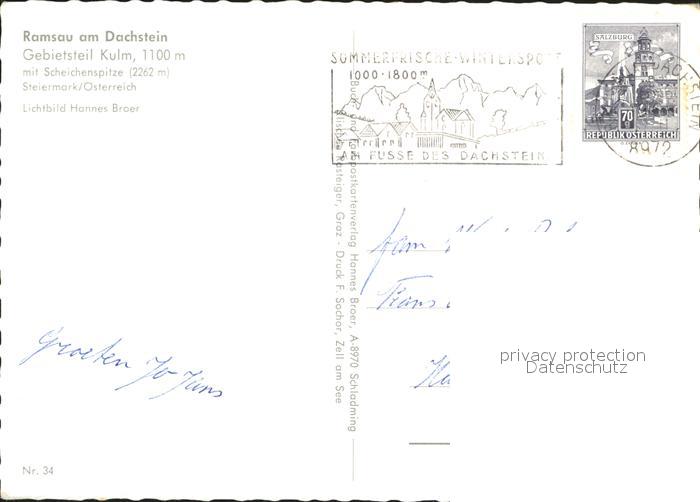 Ramsau am Dachstein
Gebietsteil Kulm, 1100 m
mit Scheichenspitze (2262 m)
Steiermark/Österreich
Lichtbild Hannes Broer
SOMMERFRISCHE-WINTERSPORT
1000-1800m
AM FUSSE DES DACHSTEIN
SALZBURG
70
REPUBLIK ÖSTERREICH
DACHSTEIN
8972
Buch- und Kunstpostkartenverlag Hannes Broer, A-8970 Schladming
Rasteiger, Graz - Druck F. Sochor, Zell am See
Groeten Jo Jans
privacy protection
Datenschutz
Nr. 34